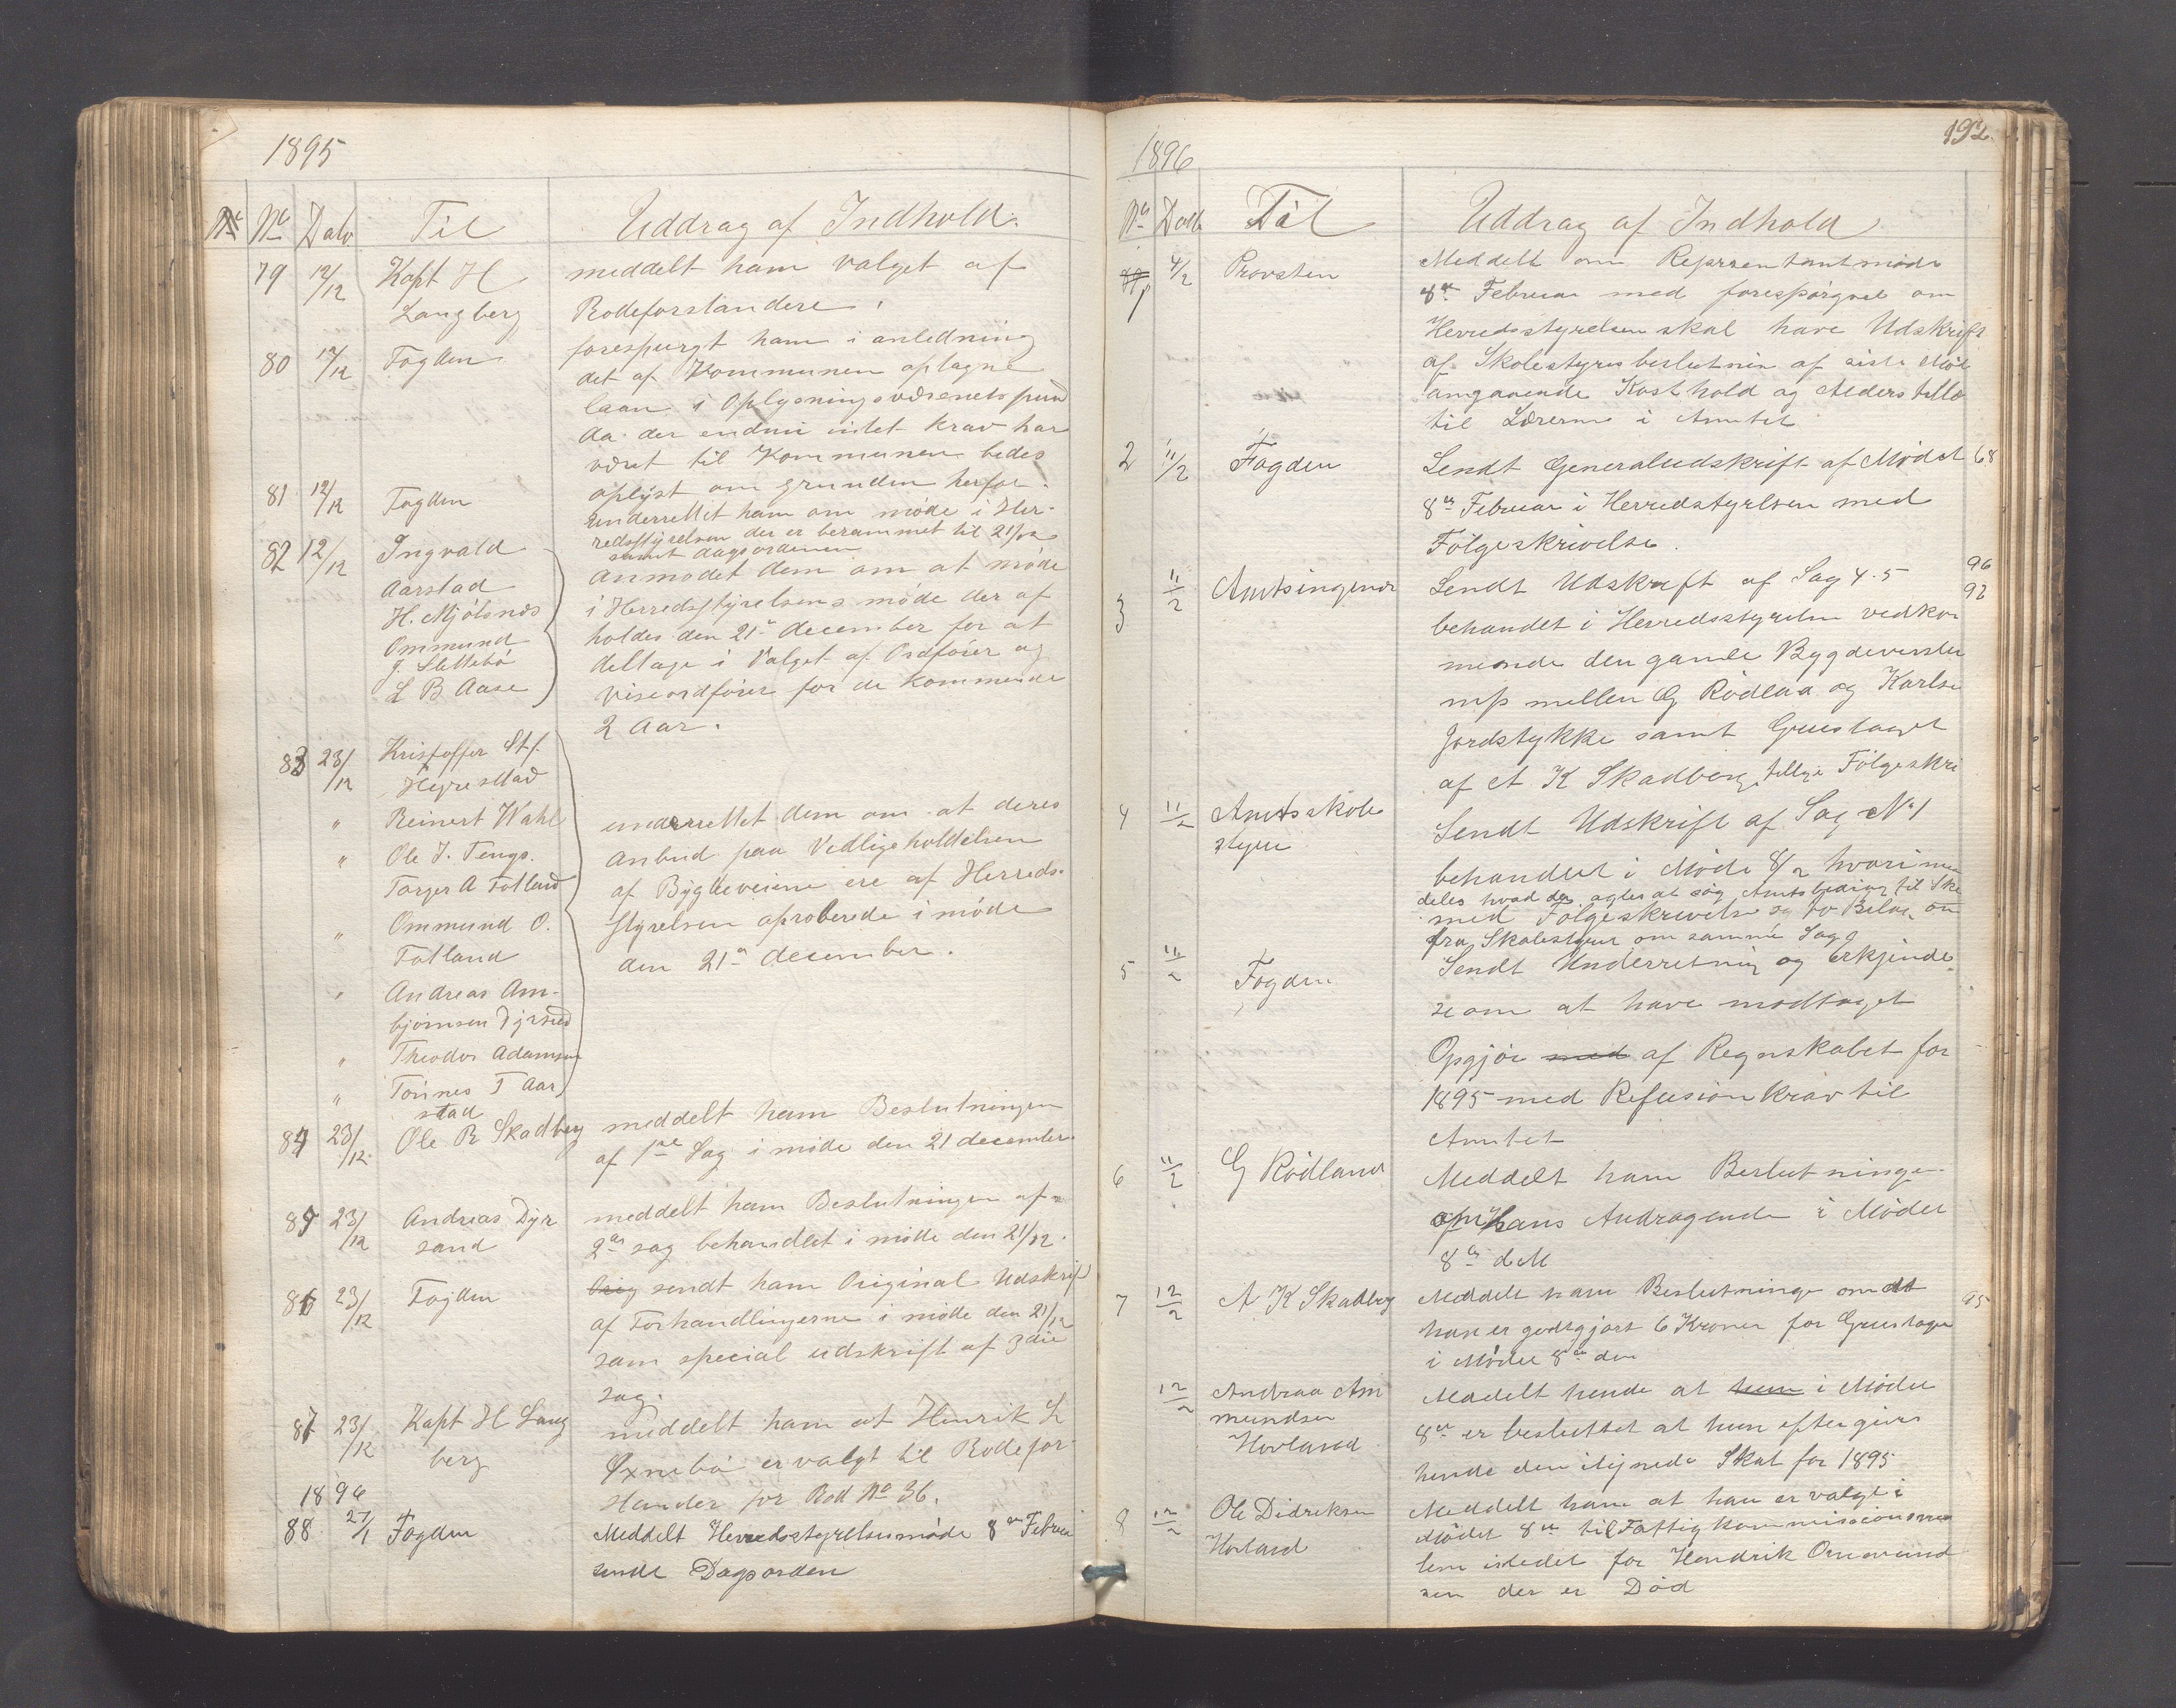 1895
No Dato Til Uddrag af Indhold.
79 12/12 Kapt H meddelt ham valget af
Langberg Rodeforstandere.
80 12/12 Fogden forespurgt ham i anledning
det af Kommunen optagne
laan i Oplysningsvæsenets fund
da der endnu intet krav har
været til Kommunen bedes
oplyst om grunden herfor.
81 12/12 Fogden underrettet ham om møde i Her-
redsstyrelsen der er berammet til 21/12
samt dagsordenen
82 12/12 Ingvald anmodet dem om at møde
Aarstad i Herredsstyrelsens møde der af
H. Mjølsnæs holdes den 21de december for at
Ommund deltage i Valget af Ordfører og
J. Slettebø viseordfører for de kommende
L B Aase 2 Aar.
83 23/12 Kristoffer St.
Hegrestad
" Reinert Wahl underrettet dem om at deres
" Ole J. Tengs. anbud paa Vedligeholdelsen
Torger A Fotland af Bygdeveiene ere af Herreds-
" Ommund O. styrelsen aproberede i møde
Fotland den 21de december.
" Andreas Am-
bjørnsen Dyrsand
" Theodor Adamsen
" Tønnes T Aar
stad
84 23/12 Ole R Skadberg meddelt ham Beslutningen
af 1ste Sag i møde den 21 december
85 23/12 Andreas Dyr meddelt ham Beslutningen af
sand 2den sag behandlet i møde den 21/12.
86 23/12 Fogden Orig sendt ham Original Udskrift
af Forhandlingerne i møde den 21/12
sam special udskrift af 3die
sag.
87 23/12 Kapt H Lang meddelt ham at Henrik L
berg Øxnebø er valgt til Rodefor-
stander for Rod No 36.
1896
88 27/1 Fogden Meddelt Herredsstyrelsesmøde 8de Februar
sendt Dagsorden
192.
1896
No Dato Til Uddrag af Indhold
1 4/2 Provsten Meddelt om Representantmøde
8de Februar med forespørgsel om
Herredsstyrelsen skal have Udskrift
af Skolestyres beslutnin af siste Møde
angaaende Kosthold og Alderstillæ
til Lærerne i Amtet
2 11/2 Fogden Sendt Generaludskrift af Mødet 68
8de Februar i Herredstyrlsen med
Følgeskrivelse.
3 11/2 Amtsingeniør Sendt Udskrift af Sag 4. 5 96
92
behandlet i Herredsstyrelsen vedkom
mende den gamle
mellem G Rødland og Karlse
Jordstykke samt Grustaget
af A K Skadberg, tillige Følgeskri
4 11/2 Amtsskole Sendt Udskrift af Sag No 1
styre behandlet i Møde 8/2 hvori med
deles hvad der agtes at søg Amtsbidrag til Sko
med Følgeskrivelse og to Bilag om
fra Skolestyret om samme Sag
5 11/2 Fogden Sendt Underretning og Erkjendel
se om at have modtaget
Opgjør med af Regnskabet for
1895 med Refusionkrav til
Amtet
6 11/2 G Rødland Meddelt ham Beslutninge
om hans Andragende i Mødet
8de dM
7 12/2 A K Skadberg Meddelt ham Beslutninge om at 95
han er godtgjort 6 Kroner for Grustage
i Mødet 8de den
12/2 Andrea Am Meddelt hende at hun i Mødet
mundsen 8de er besluttet at hun eftergives
Hovland hende den ilignede Skat for 1895
8 12/2 Ole Didriksen Meddelt ham at han er valgt i
Hovland Mødet 8de til Fattigkommissionsmed
lem istedet for Hendrik Ommund
sen der er Død